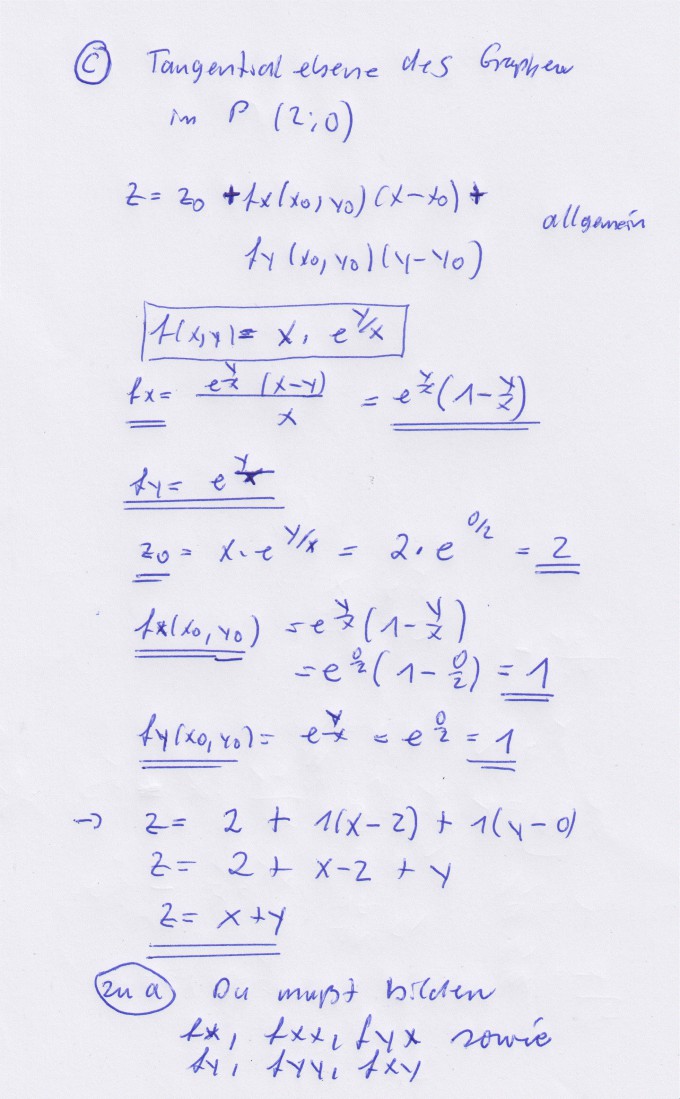 c) Tangentialebene des Graphen
im P (2;0)
z = z0 + fx(x0,y0)(x-x0) +
allgemein
fy(x0,y0)(y-y0)
f(x,y) = x · e^(y/x)
fx = e^(y/x) (x-y) / x = e^(y/x) (1 - y/x)
fy = e^(y/x)
z0 = x · e^(y/x) = 2 · e^(0/2) = 2
fx(x0,y0) = e^(y/x) (1 - y/x)
= e^(0/2) (1 - 0/2) = 1
fy(x0,y0) = e^(y/x) = e^(0/2) = 1
→ z = 2 + 1(x-2) + 1(y-0)
z = 2 + x-2 + y
z = x+y
zu a Du mußt bilden
fx, fxx, fyx sowie
fy, fyy, fxy